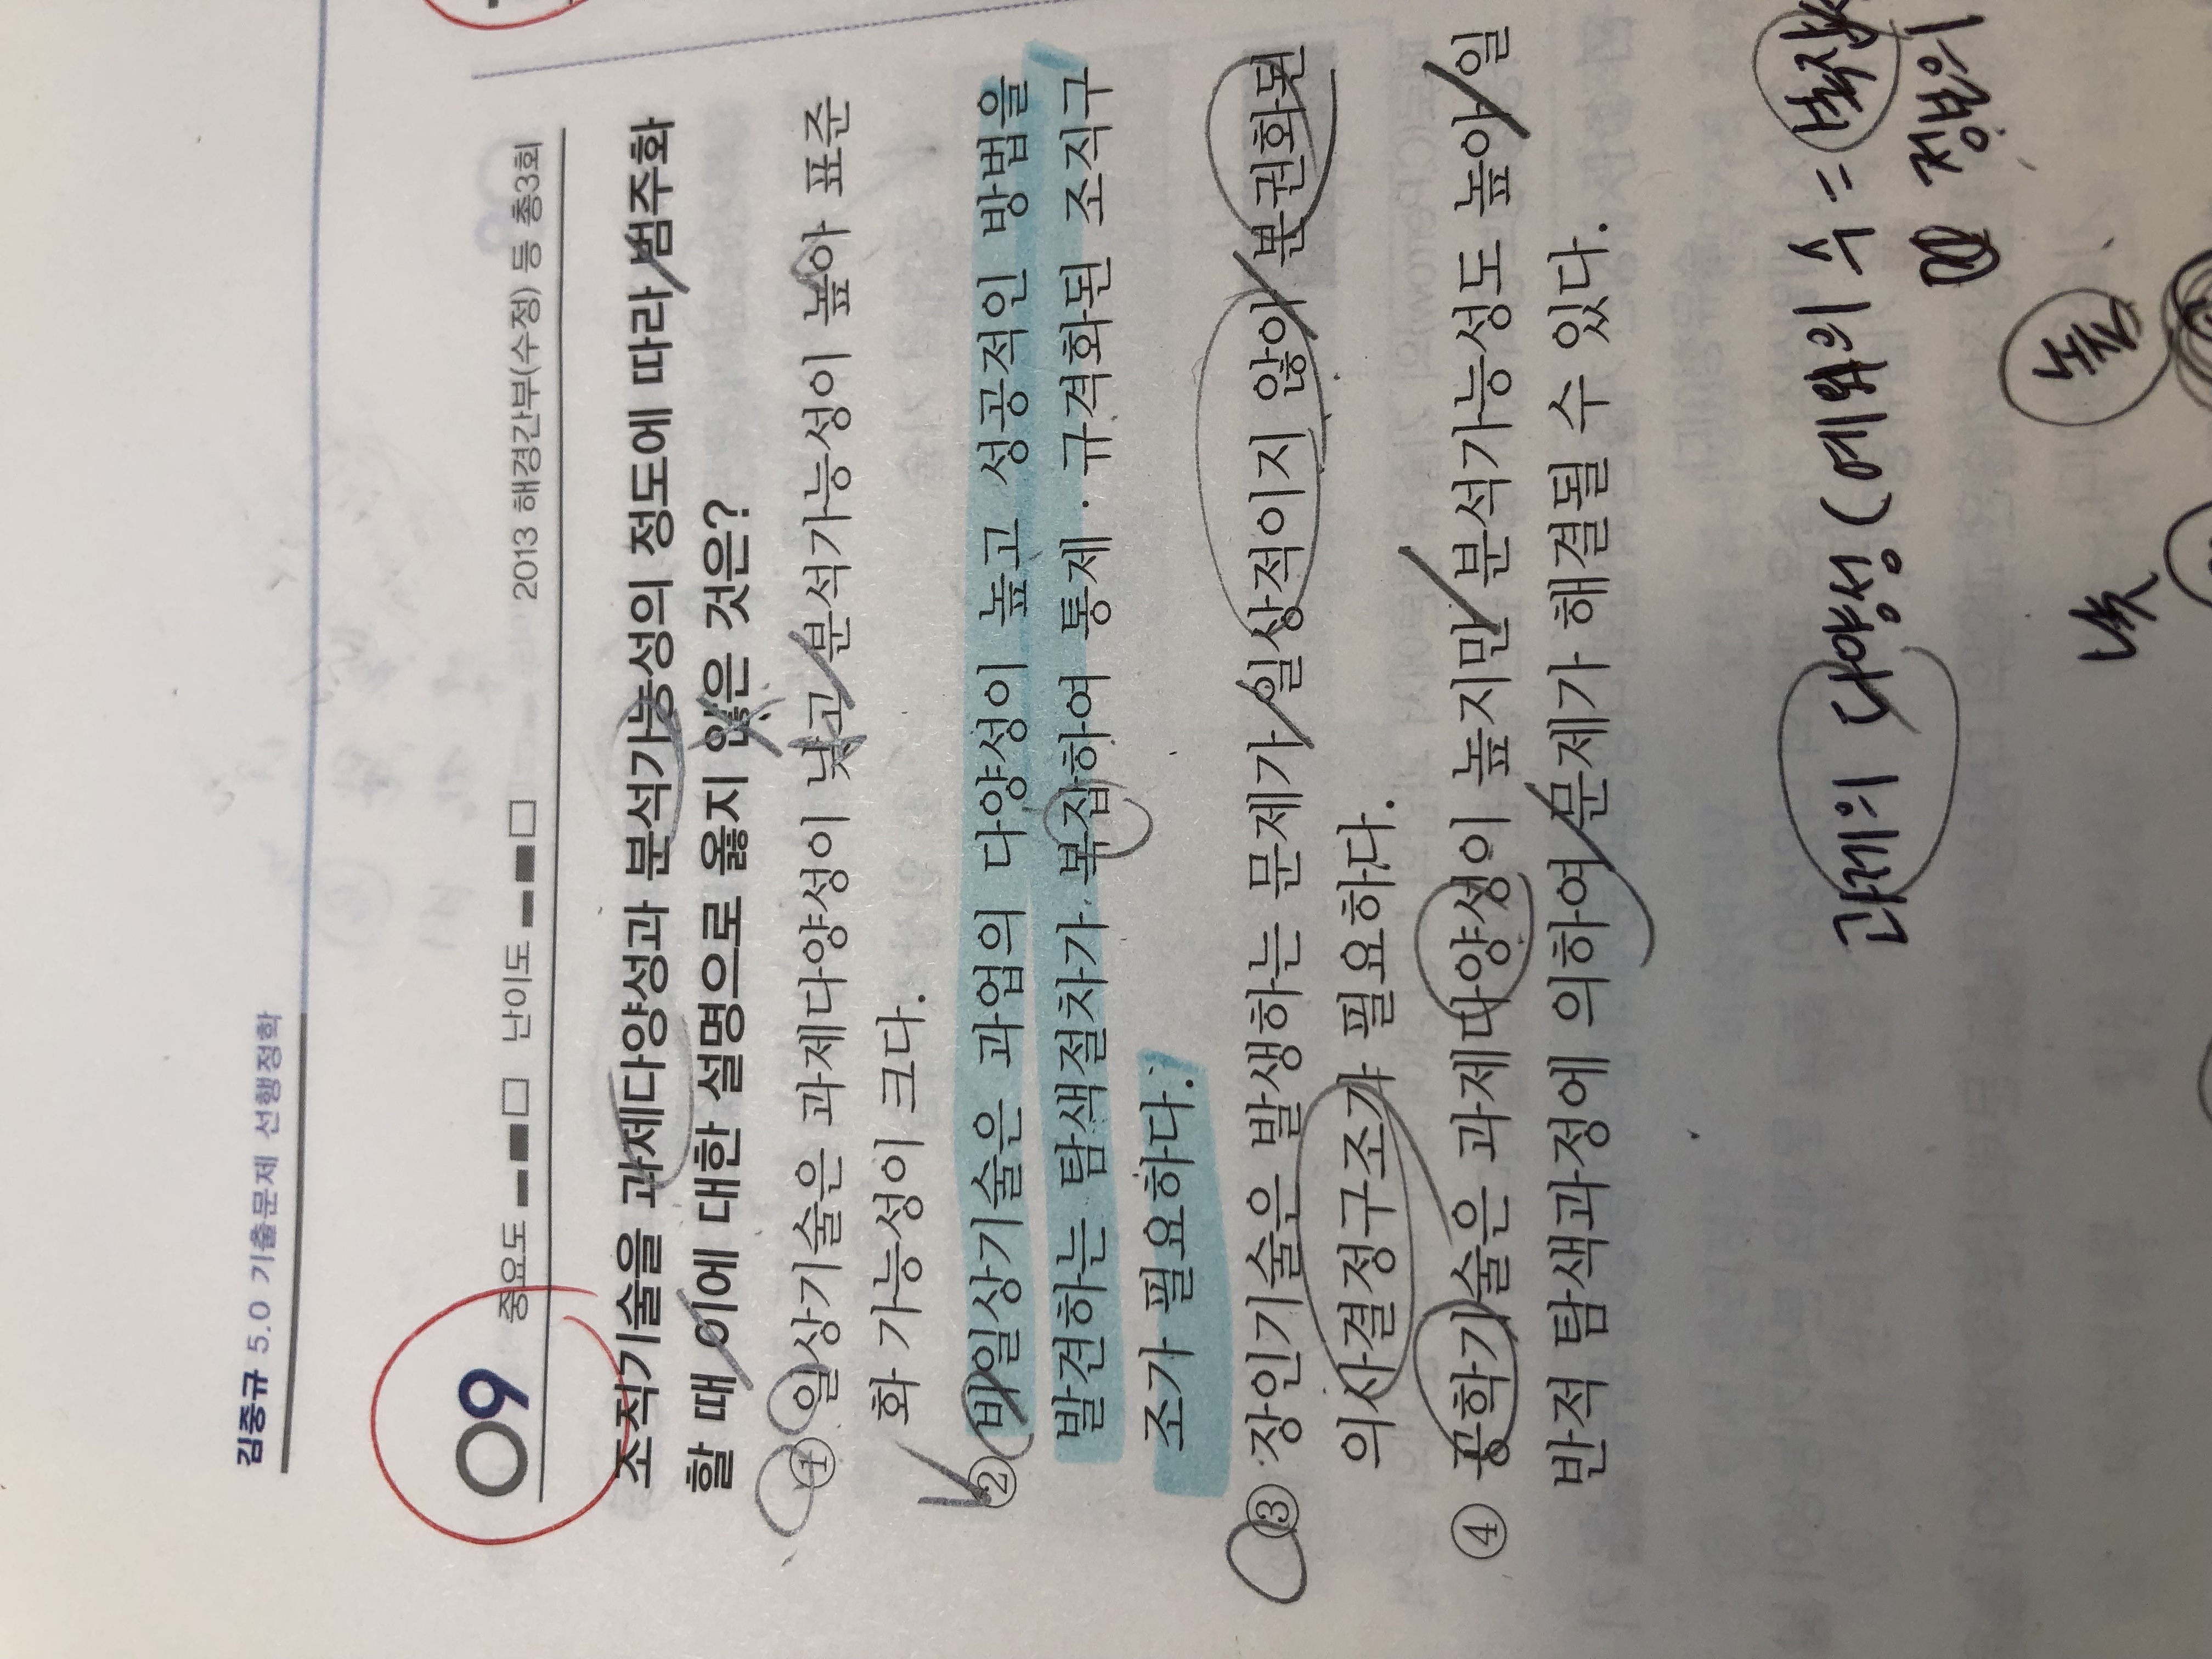 김중규 5.0 기출문제 선행정학
09 중요도 난이도 2013 해경간부(수정) 등 총3회
조직기술을 과제다양성과 분석가능성의 정도에 따라 범주화
할 때 이에 대한 설명으로 옳지 않은 것은?
① 일상기술은 과제다양성이 낮고 분석가능성이 높아 표준
화 가능성이 크다.
② 비일상기술은 과업의 다양성이 높고 성공적인 방법을
발견하는 탐색절차가 복잡하여 통제·규격화된 조직구
조가 필요하다.
③ 장인기술은 발생하는 문제가 일상적이지 않아 분권화된
의사결정구조가 필요하다.
④ 공학기술은 과제다양성이 높지만 분석가능성도 높아 일
반적 탐색과정에 의하여 문제가 해결될 수 있다.
과제의 다양성 (예외의 수 =
정보의
낮